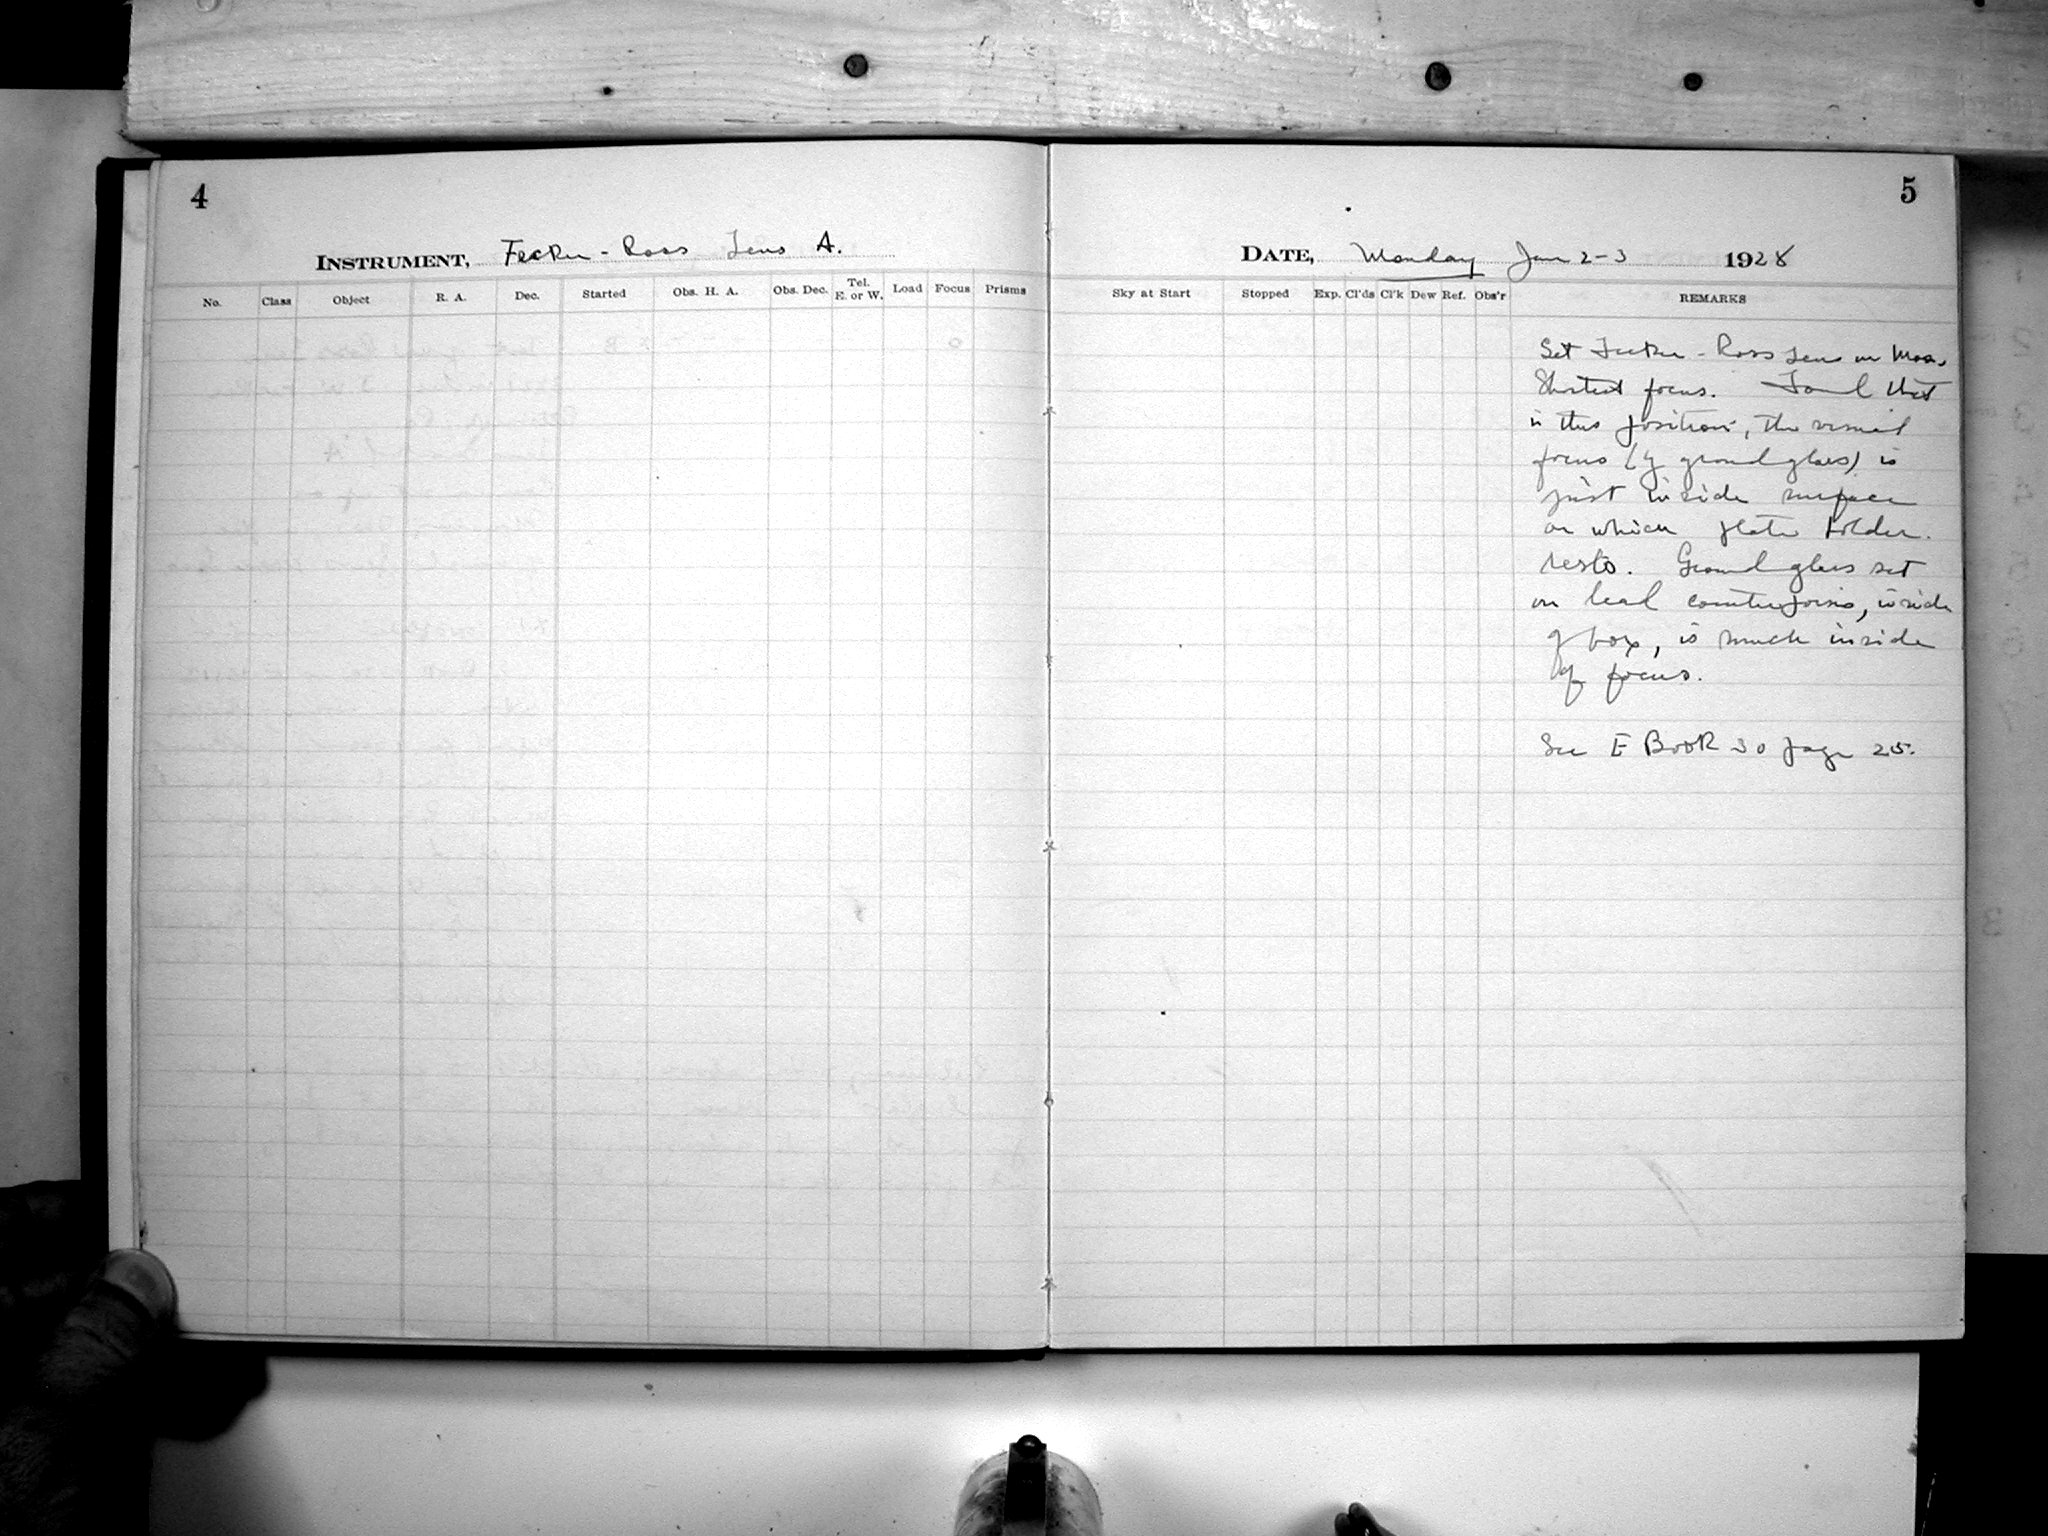 4
INSTRUMENT, Fecker - Ross Lens A.
No. Class Object R. A. Dec. Started Obs. H. A. Obs. Dec. Tel. E. or W. Load Focus Prisms
5
DATE, Monday Jan 2-3 1928
Sky at Start Stopped Exp. Cl'ds Cl'k Dew Ref. Obs'r REMARKS
Set Fecker - Ross Lens on
Shortest focus. Found that
in this position, the visual
focus (by ground glass) is
just inside surface
on which plate holder
rests. Ground glass set
on lead counterpoise, inside
of box, is much inside
of focus.
See E Book 30 page 25.